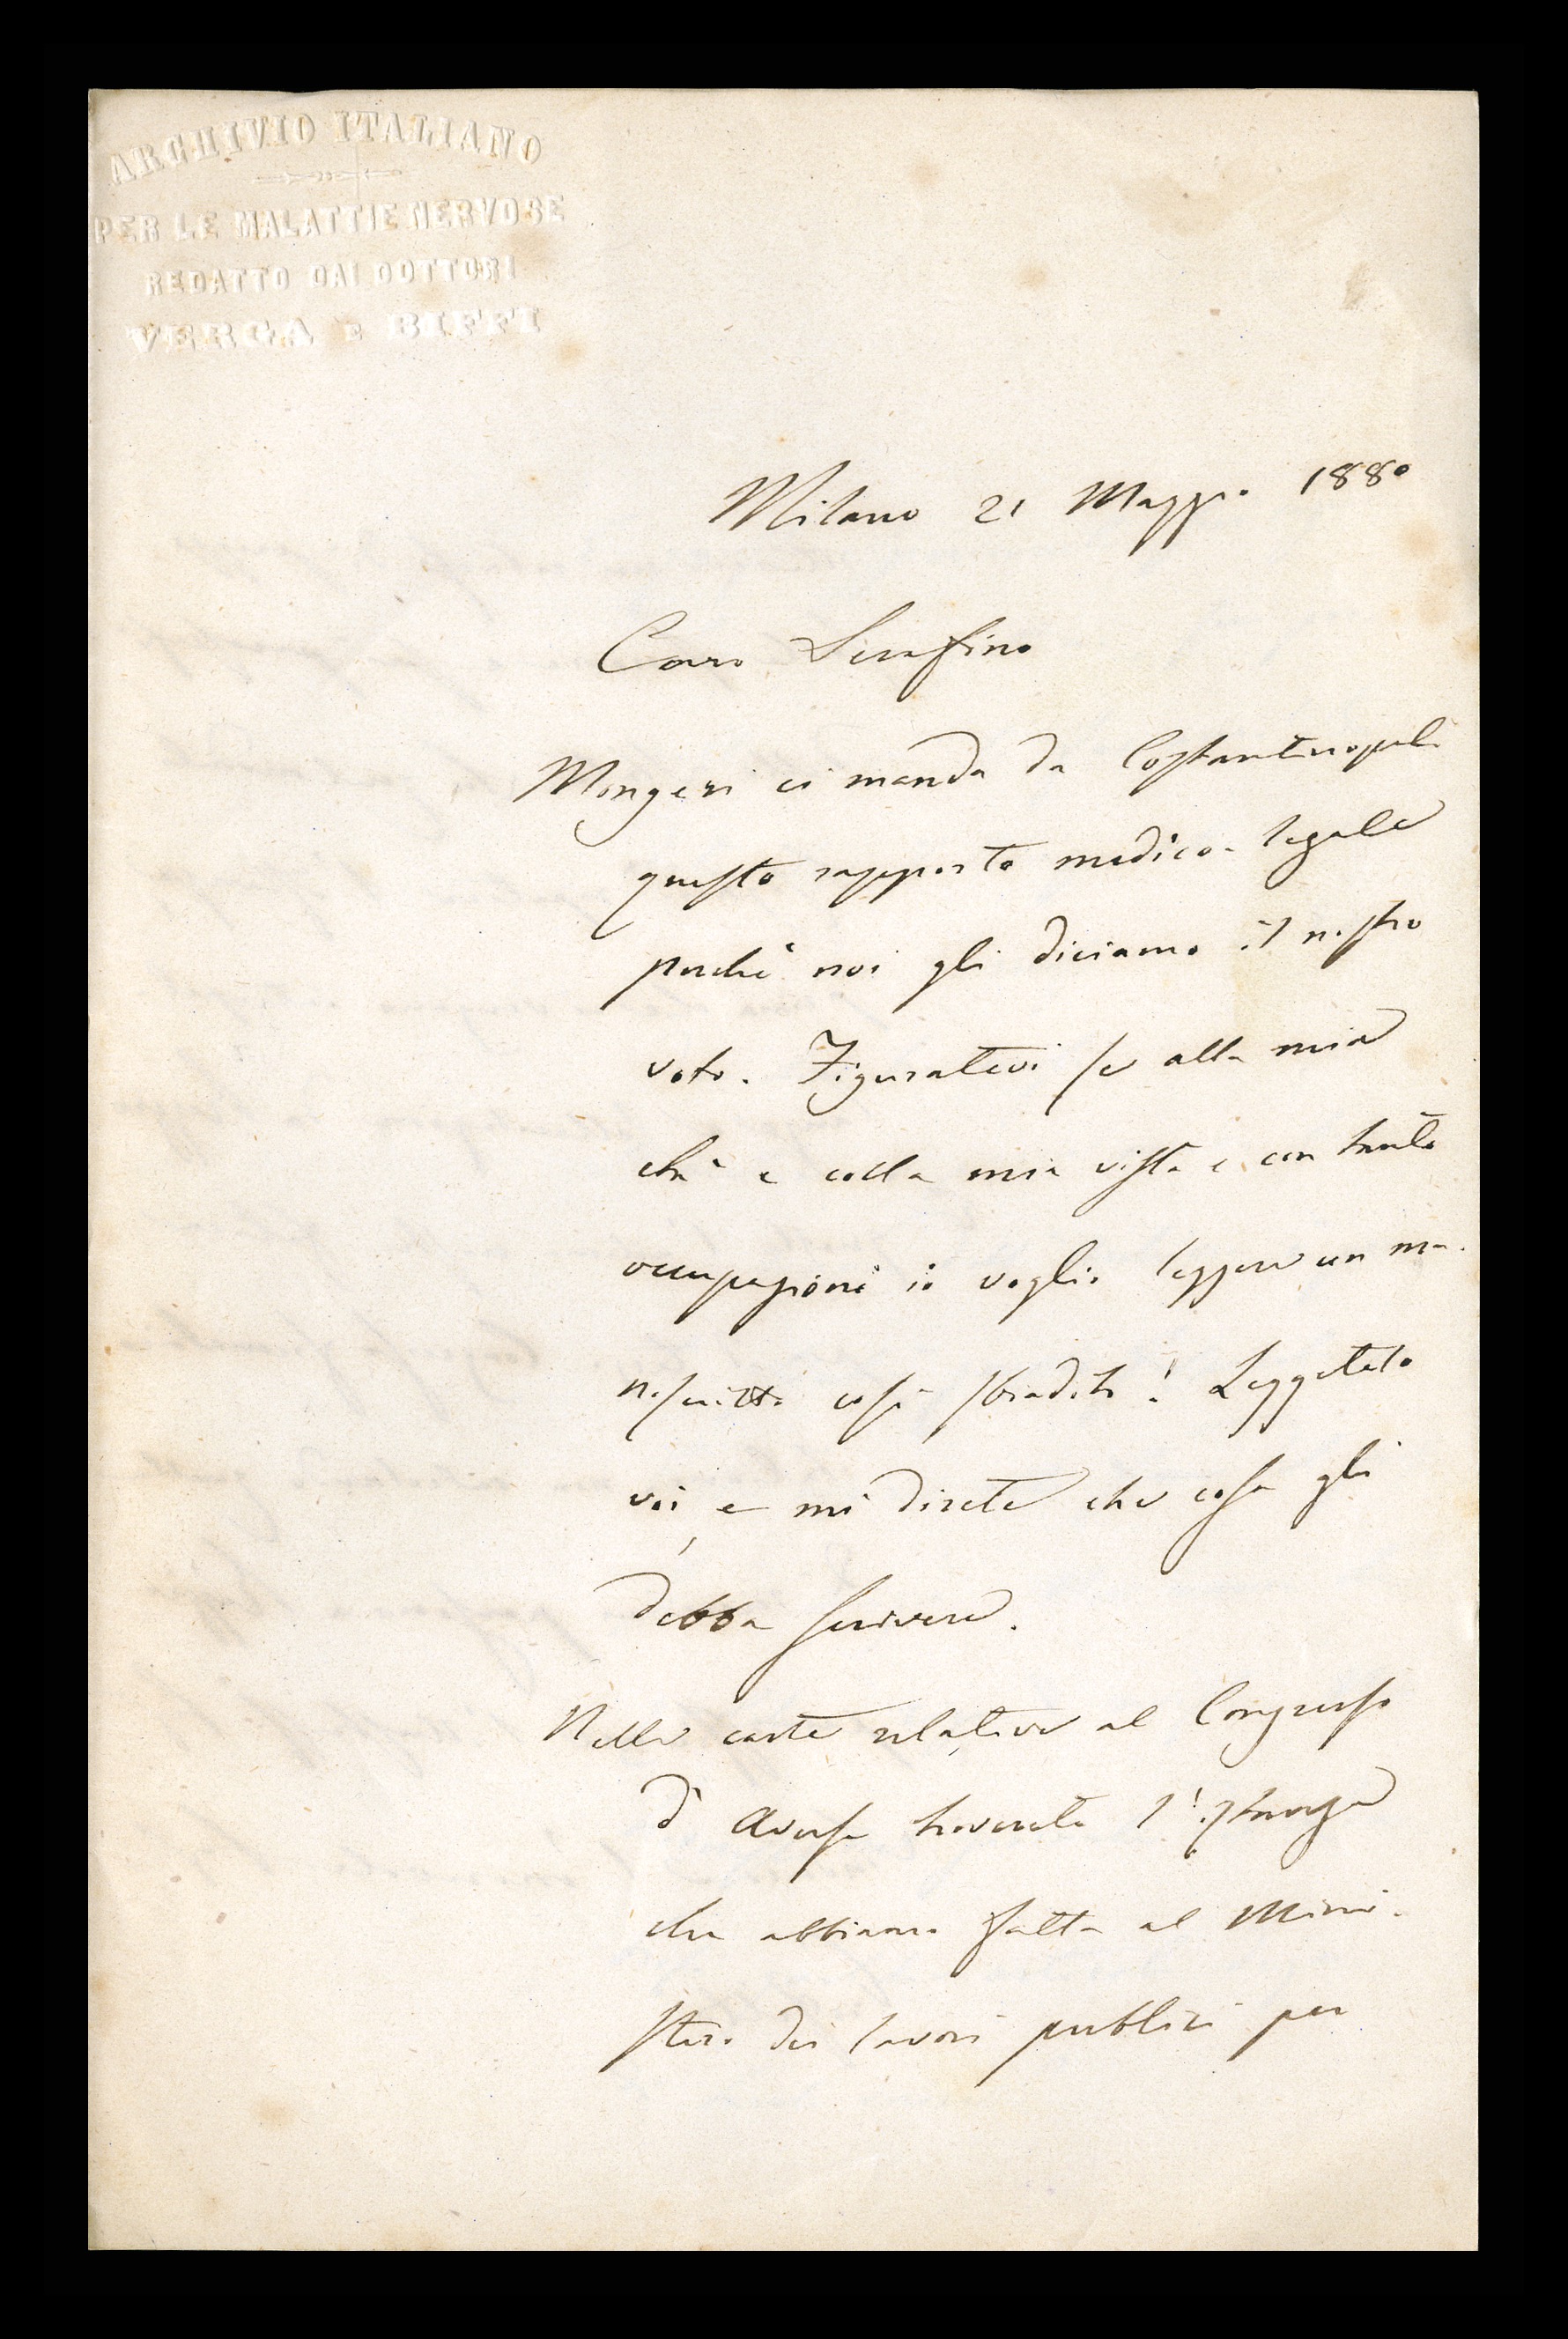 ARCHIVIO ITALIANO
PER LE MALATTIE NERVOSE
REDATTO DAI DOTTORI
VERGA E BIFFI
Milano 21 Maggio 1880
Caro Serafino
Mongeri ci manda da Costantinopoli
questo rapporto medico-legale
perché noi gli diciamo il nostro
voto. Figuratevi se alla mia
età e colla mia vista e con tante
occupazioni io voglio leggere un ma-
noscritto così sbiadito! Leggetelo
voi, e mi direte che cosa gli
debba scrivere.
Nelle carte relative al Congresso
d'Aversa troverete l'istanza
che abbiamo fatta al Mini-
stero dei lavori pubblici per